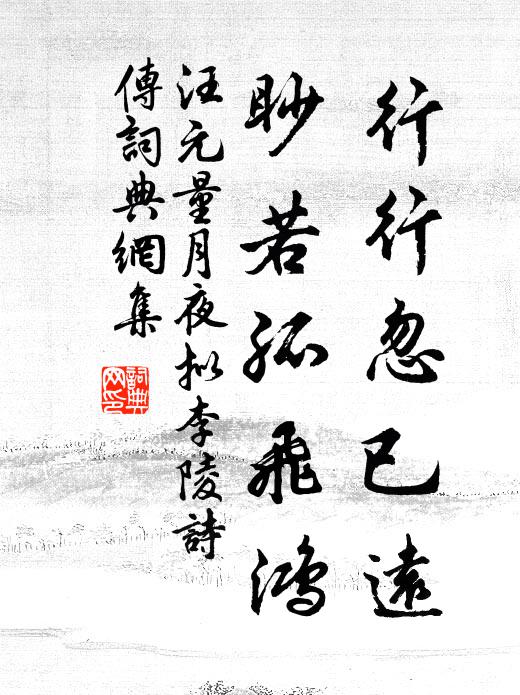 行行忽已遠
眇若孤飛鴻
汪元量月夜拟李陵詩
傳詞典網集
詞典
网印